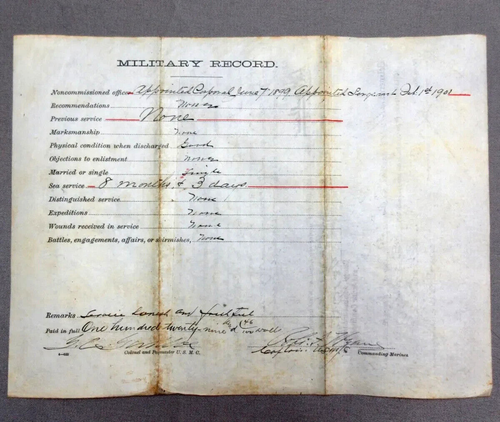 MILITARY RECORD.
Noncommissioned officer Appointed Corporal June 7 1899 Appointed Sergeant Oct. 1st 1901
Recommendations None
Previous service None
Marksmanship None
Physical condition when discharged Good
Objections to enlistment None
Married or single Single
Sea service 8 months & 3 days
Distinguished service None
Expeditions None
Wounds received in service None
Battles, engagements, affairs, or skirmishes, None
Remarks Service honest and faithful
Paid in full One hundred twenty-nine &
Colonel and Paymaster U. S. M. C.
Captain
Commanding Marines